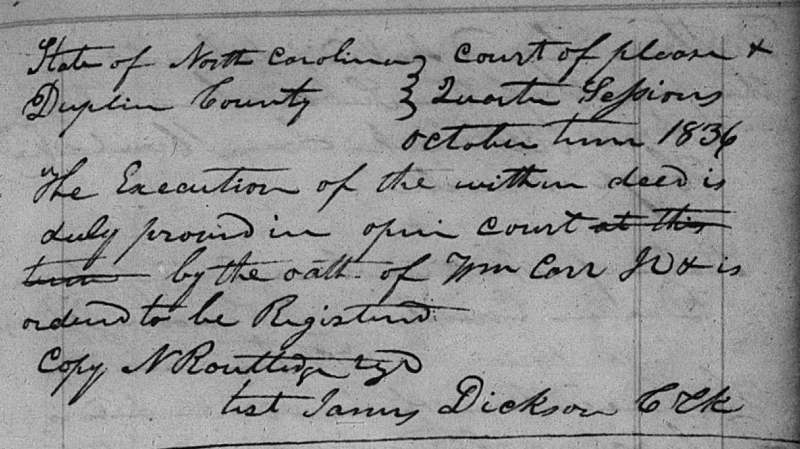 State of North Carolina } Court of pleas &
Duplin County } Quarter Sessions
October term 1836
The Execution of the within deed is
duly proved in open court at this
term by the oath of Wm Carr Jr & is
ordered to be Registered
Copy N Routledge
test James Dickson Clk